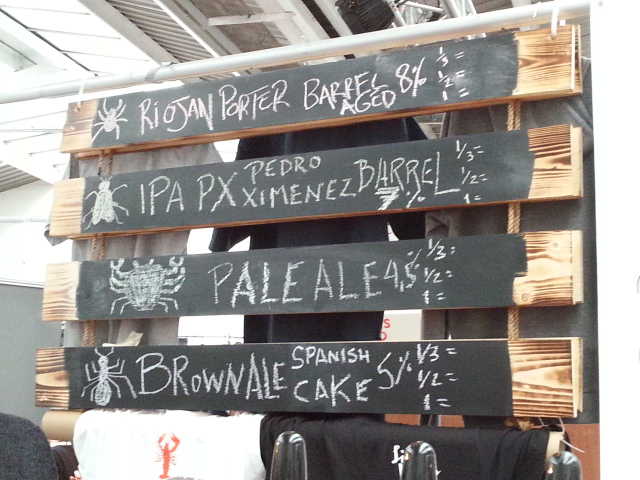 RIOJAN PORTER BARREL AGED 8% 1/3= 1/2= 1=
IPA PX PEDRO XIMENEZ BARREL 7% 1/3= 1/2= 1=
PALE ALE 4,5% 1/3= 1/2= 1=
BROWN ALE SPANISH CAKE 5% 1/3= 1/2= 1=